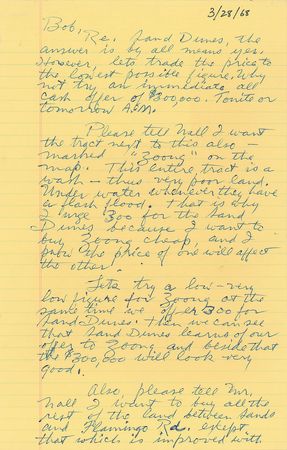 3/28/68
Bob,
Re. Sand Dunes, the
answer is by all means yes.
However, lets trade the price to
the lowest possible figure. Why
not try an immediate all
cash offer of $300,000. Tonite or
tomorrow A.M.
Please tell Nall I want
the tract next to this also –
marked "Zoong" on the
map. This entire tract is a
wash – thus very poor land.
Under water whenever they have
a flash flood. That is why
I urge 300 for the Sand
Dunes because I want to
buy Zoong cheap, and I
know the price of one will affect
the other.
Lets try a low – very
low figure for Zoong at the
same time we offer 300 for
Sand Dunes. Then we can see
that Sand Dunes learns of our
offer to Zoong and beside that
the $300,000 will look very
good.
Also, please tell Mr.
Nall I want to buy all the
rest of the land between Sands
and Flamingo Rd. except
that which is improved with